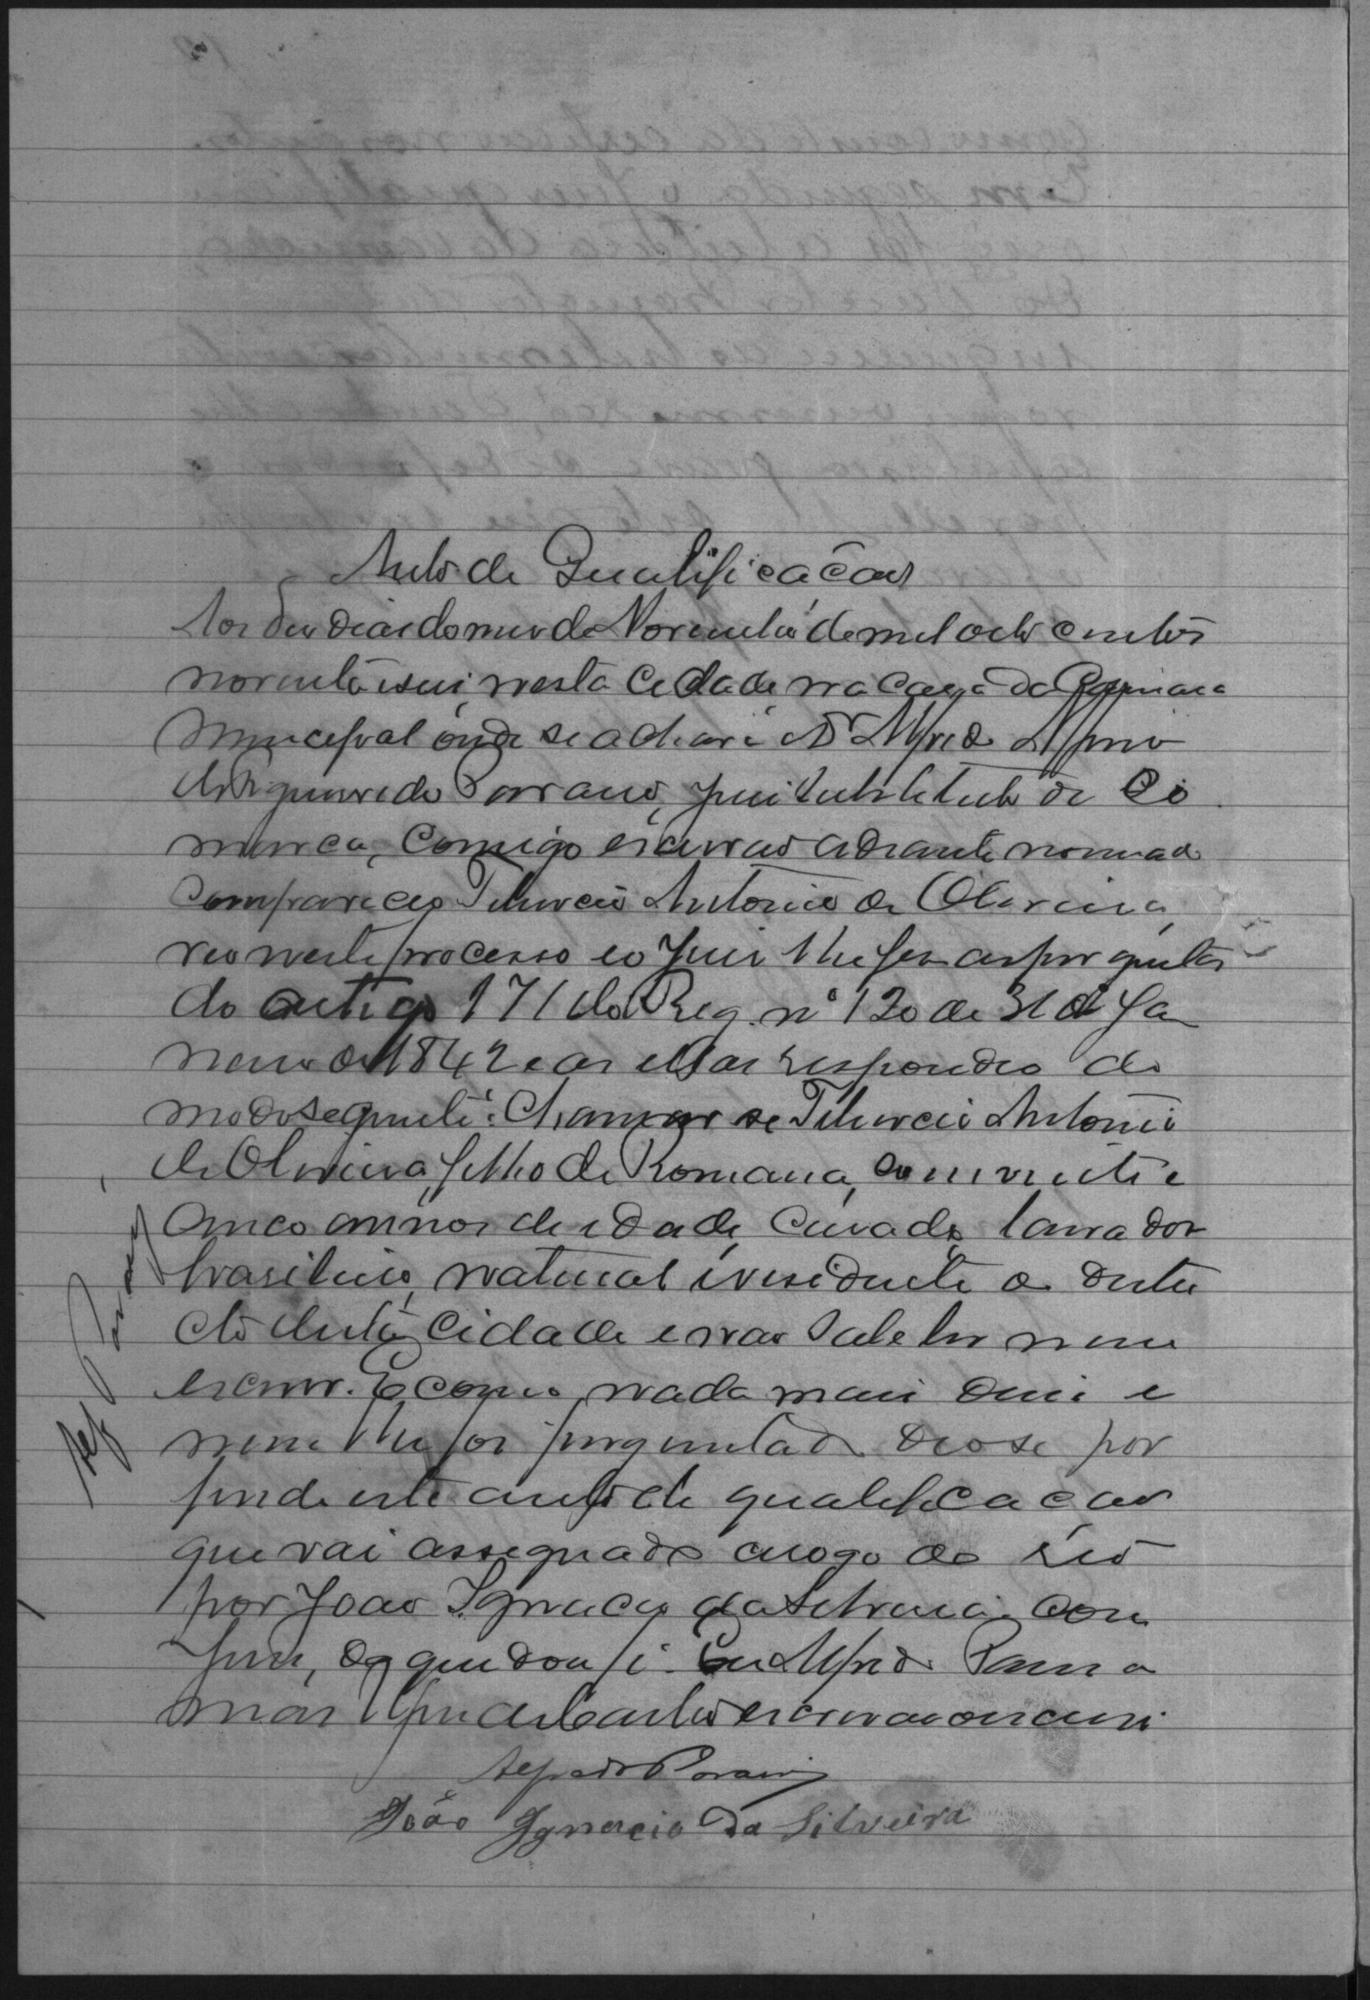 Auto de Qualificação
Aos dez dias do mez de Novembro de mil oito centos
noventa e seis, nesta Cidade na Casa da Camara
Municipal onde se achava o Dr Alfredo
de Figueiredo Juiz Substituto da Co
marca, Comigo escrivão adiante nomeado
Compareceo Tiburcio Antonio de Oliveira,
reo neste processo e o Juiz lhe fez as perguntas
do artigo 171 do Reg. nº 120 de 31 de Ja
neiro de 1842 e as ellas respondeo do
modo seguinte: Chamar se Tiburcio Antonio
de Oliveira, filho de Romana, com vinte e
cinco annos de idade, casado, lavrador
brasileiro, natural e residente no destri
cto desta cidade e não sabe ler nem
escrever. E como nada mais disse e
nem lhe foi perguntado deo se por
findo este auto de qualificação
que vai assignado a rogo do reo
por João Ignacio da Silveira com
Juiz, do que dou fé. Eu Alfredo
escrivão o escrevi
Alfredo
João Ignacio da Silveira